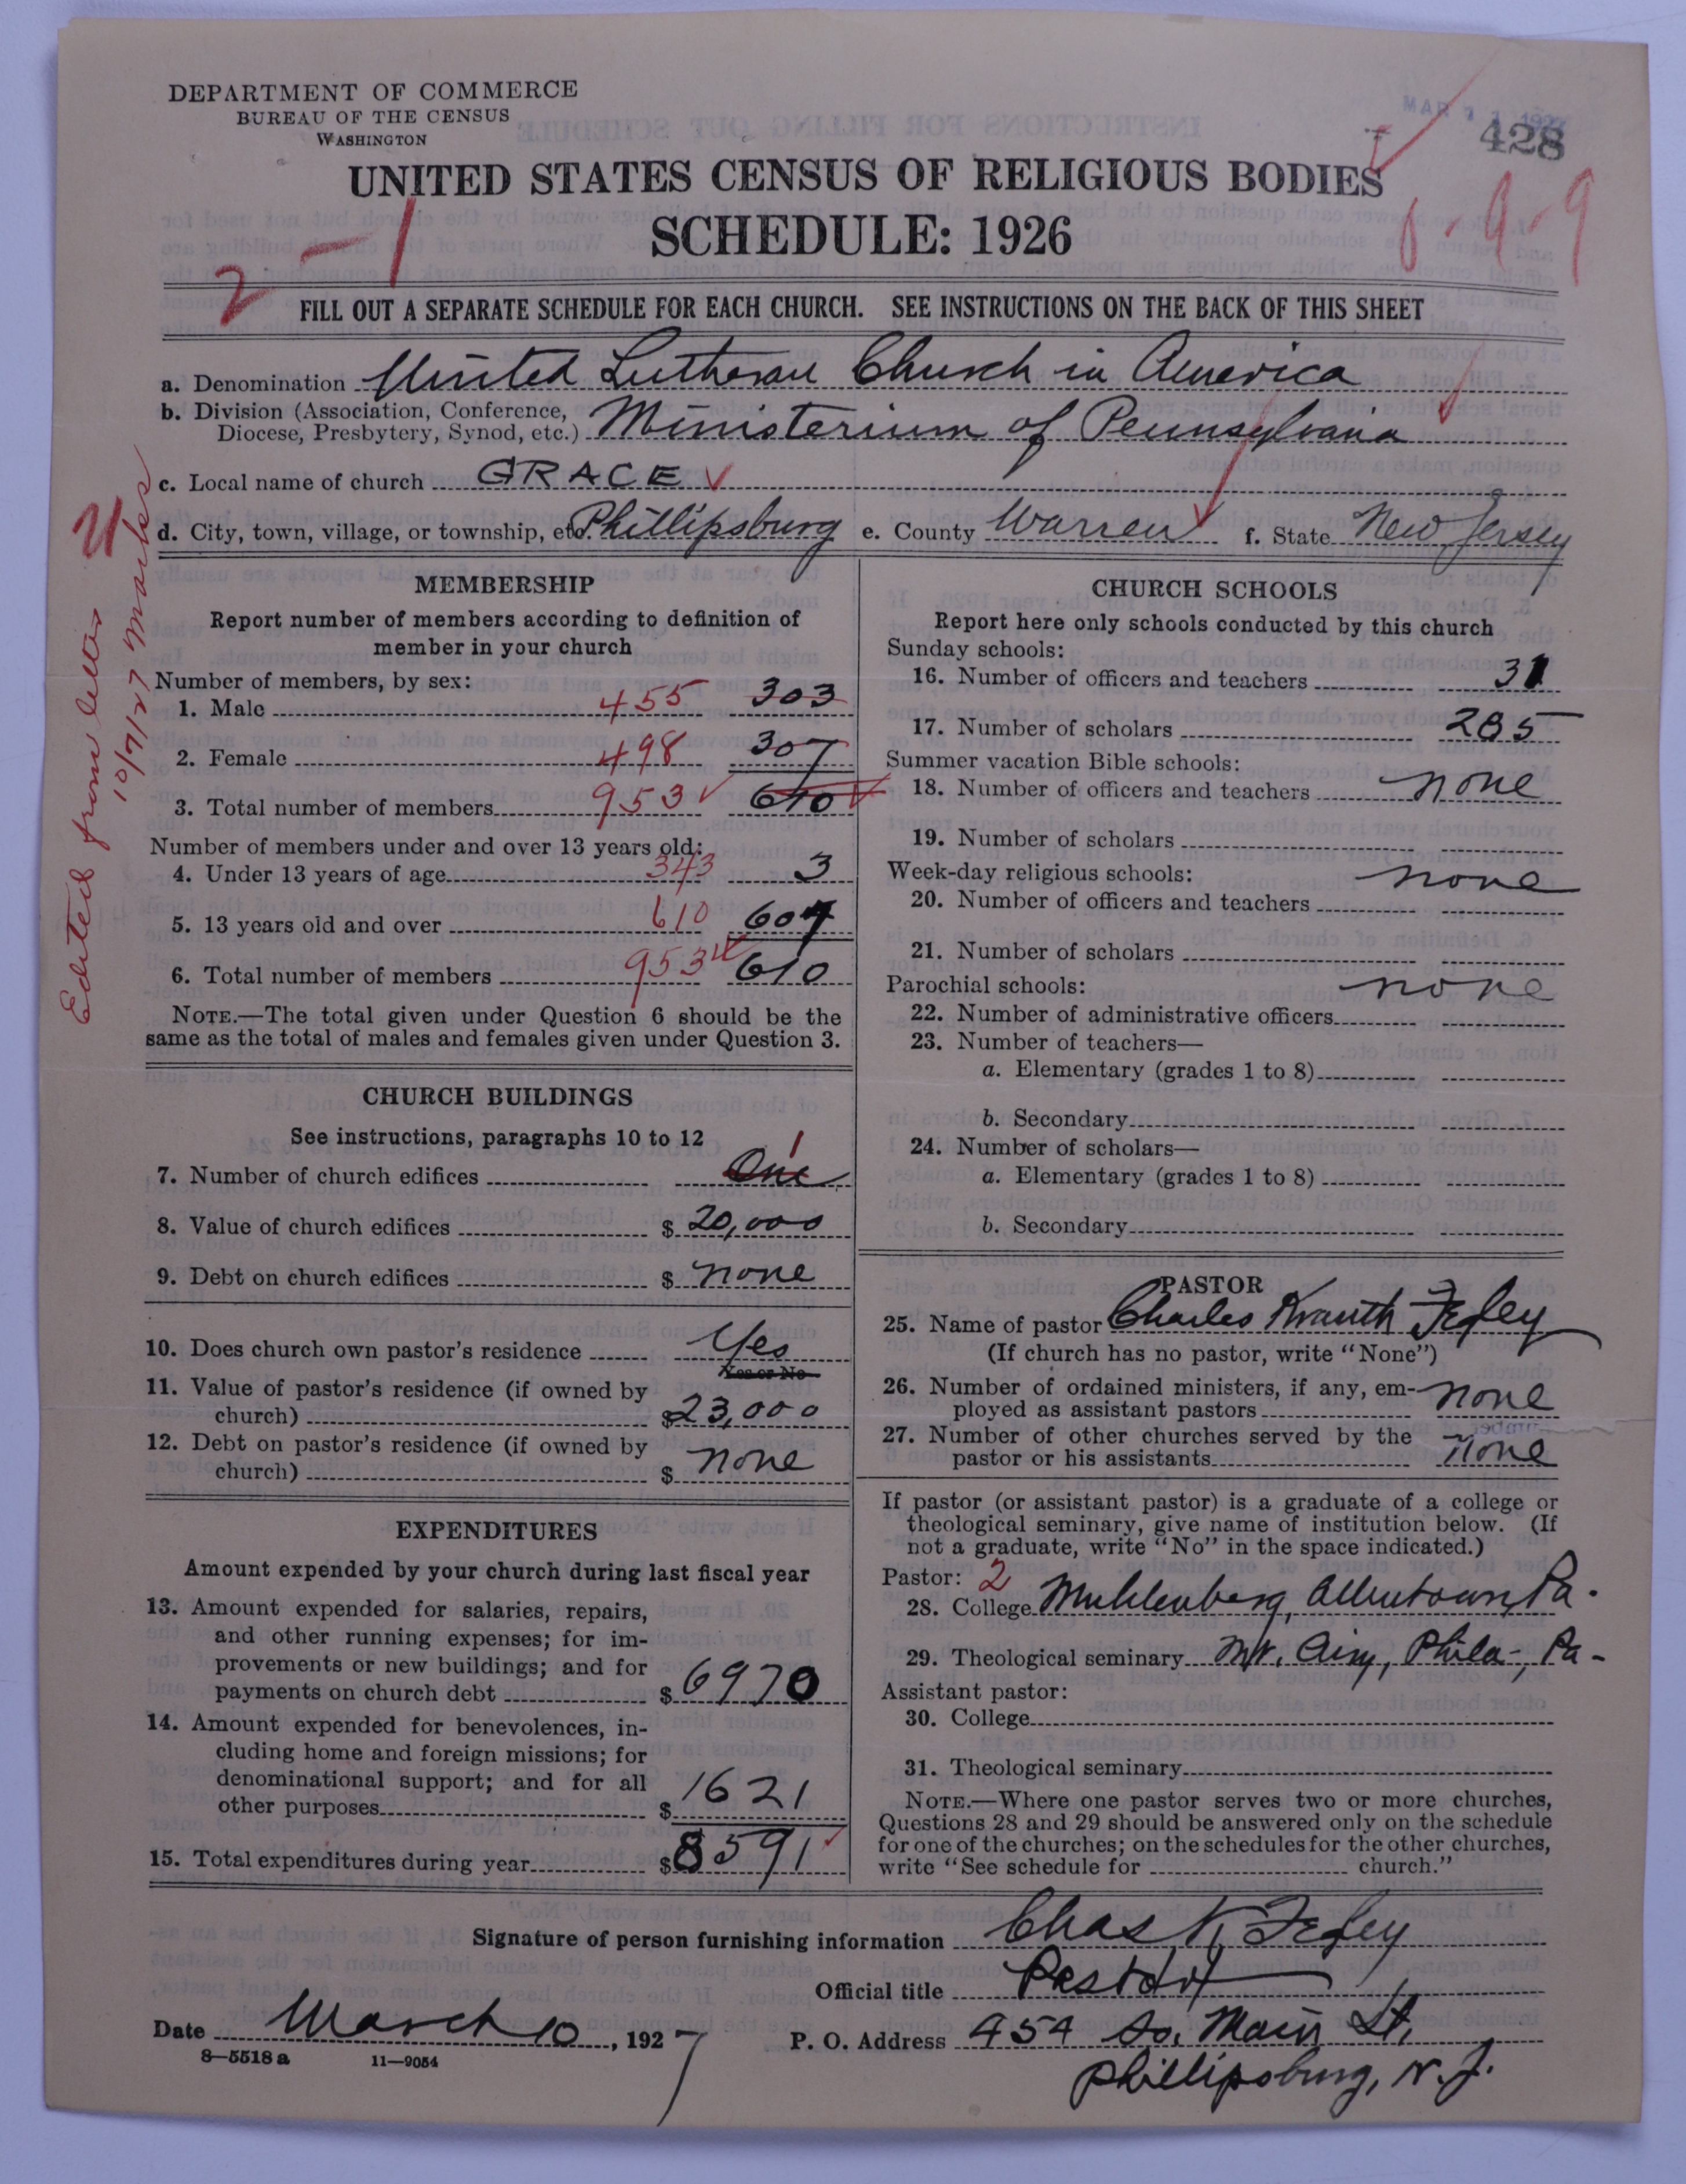 DEPARTMENT OF COMMERCE
BUREAU OF THE CENSUS
WASHINGTON
428
UNITED STATES CENSUS OF RELIGIOUS BODIES
SCHEDULE: 1926
2-1
FILL OUT A SEPARATE SCHEDULE FOR EACH CHURCH. SEE INSTRUCTIONS ON THE BACK OF THIS SHEET
a. Denomination United Lutheran Church in America
b. Division (Association, Conference, Diocese, Presbytery, Synod, etc.) Ministerium of Pennsylvania
c. Local name of church GRACE
d. City, town, village, or township, etc. Phillipsburg e. County Warren f. State New Jersey
Edited from letter
10/7/27 Marks
MEMBERSHIP
Report number of members according to definition of
member in your church
Number of members, by sex:
1. Male 455 303
2. Female 498 307
3. Total number of members 953 610
Number of members under and over 13 years old:
4. Under 13 years of age 343 3
5. 13 years old and over 610 607
6. Total number of members 953 610
NOTE.—The total given under Question 6 should be the
same as the total of males and females given under Question 3.
CHURCH BUILDINGS
See instructions, paragraphs 10 to 12
7. Number of church edifices One 1
8. Value of church edifices $ 20,000
9. Debt on church edifices $ none
10. Does church own pastor's residence Yes
Yes or No
11. Value of pastor's residence (if owned by
church) $ 23,000
12. Debt on pastor's residence (if owned by
church) $ none
EXPENDITURES
Amount expended by your church during last fiscal year
13. Amount expended for salaries, repairs,
and other running expenses; for im-
provements or new buildings; and for
payments on church debt $ 6970
14. Amount expended for benevolences, in-
cluding home and foreign missions; for
denominational support; and for all
other purposes $ 1621
15. Total expenditures during year $ 8591
CHURCH SCHOOLS
Report here only schools conducted by this church
Sunday schools:
16. Number of officers and teachers 31
17. Number of scholars 285
Summer vacation Bible schools:
18. Number of officers and teachers none
19. Number of scholars
Week-day religious schools: none
20. Number of officers and teachers
21. Number of scholars
Parochial schools: none
22. Number of administrative officers
23. Number of teachers—
a. Elementary (grades 1 to 8)
b. Secondary
24. Number of scholars—
a. Elementary (grades 1 to 8)
b. Secondary
PASTOR
25. Name of pastor Charles Krauth Fegley
(If church has no pastor, write "None")
26. Number of ordained ministers, if any, em-
ployed as assistant pastors none
27. Number of other churches served by the
pastor or his assistants None
If pastor (or assistant pastor) is a graduate of a college or
theological seminary, give name of institution below. (If
not a graduate, write "No" in the space indicated.)
Pastor: 2
28. College Muhlenberg, Allentown, Pa.
29. Theological seminary Mt. Airy, Phila-, Pa-
Assistant pastor:
30. College
31. Theological seminary
NOTE.—Where one pastor serves two or more churches,
Questions 28 and 29 should be answered only on the schedule
for one of the churches; on the schedules for the other churches,
write "See schedule for church."
Signature of person furnishing information Chas K. Fegley
Official title Pastor
Date March 10, 1927 P. O. Address 454 So. Main St.
Phillipsburg, N. J.
8—5518 a 11—9054